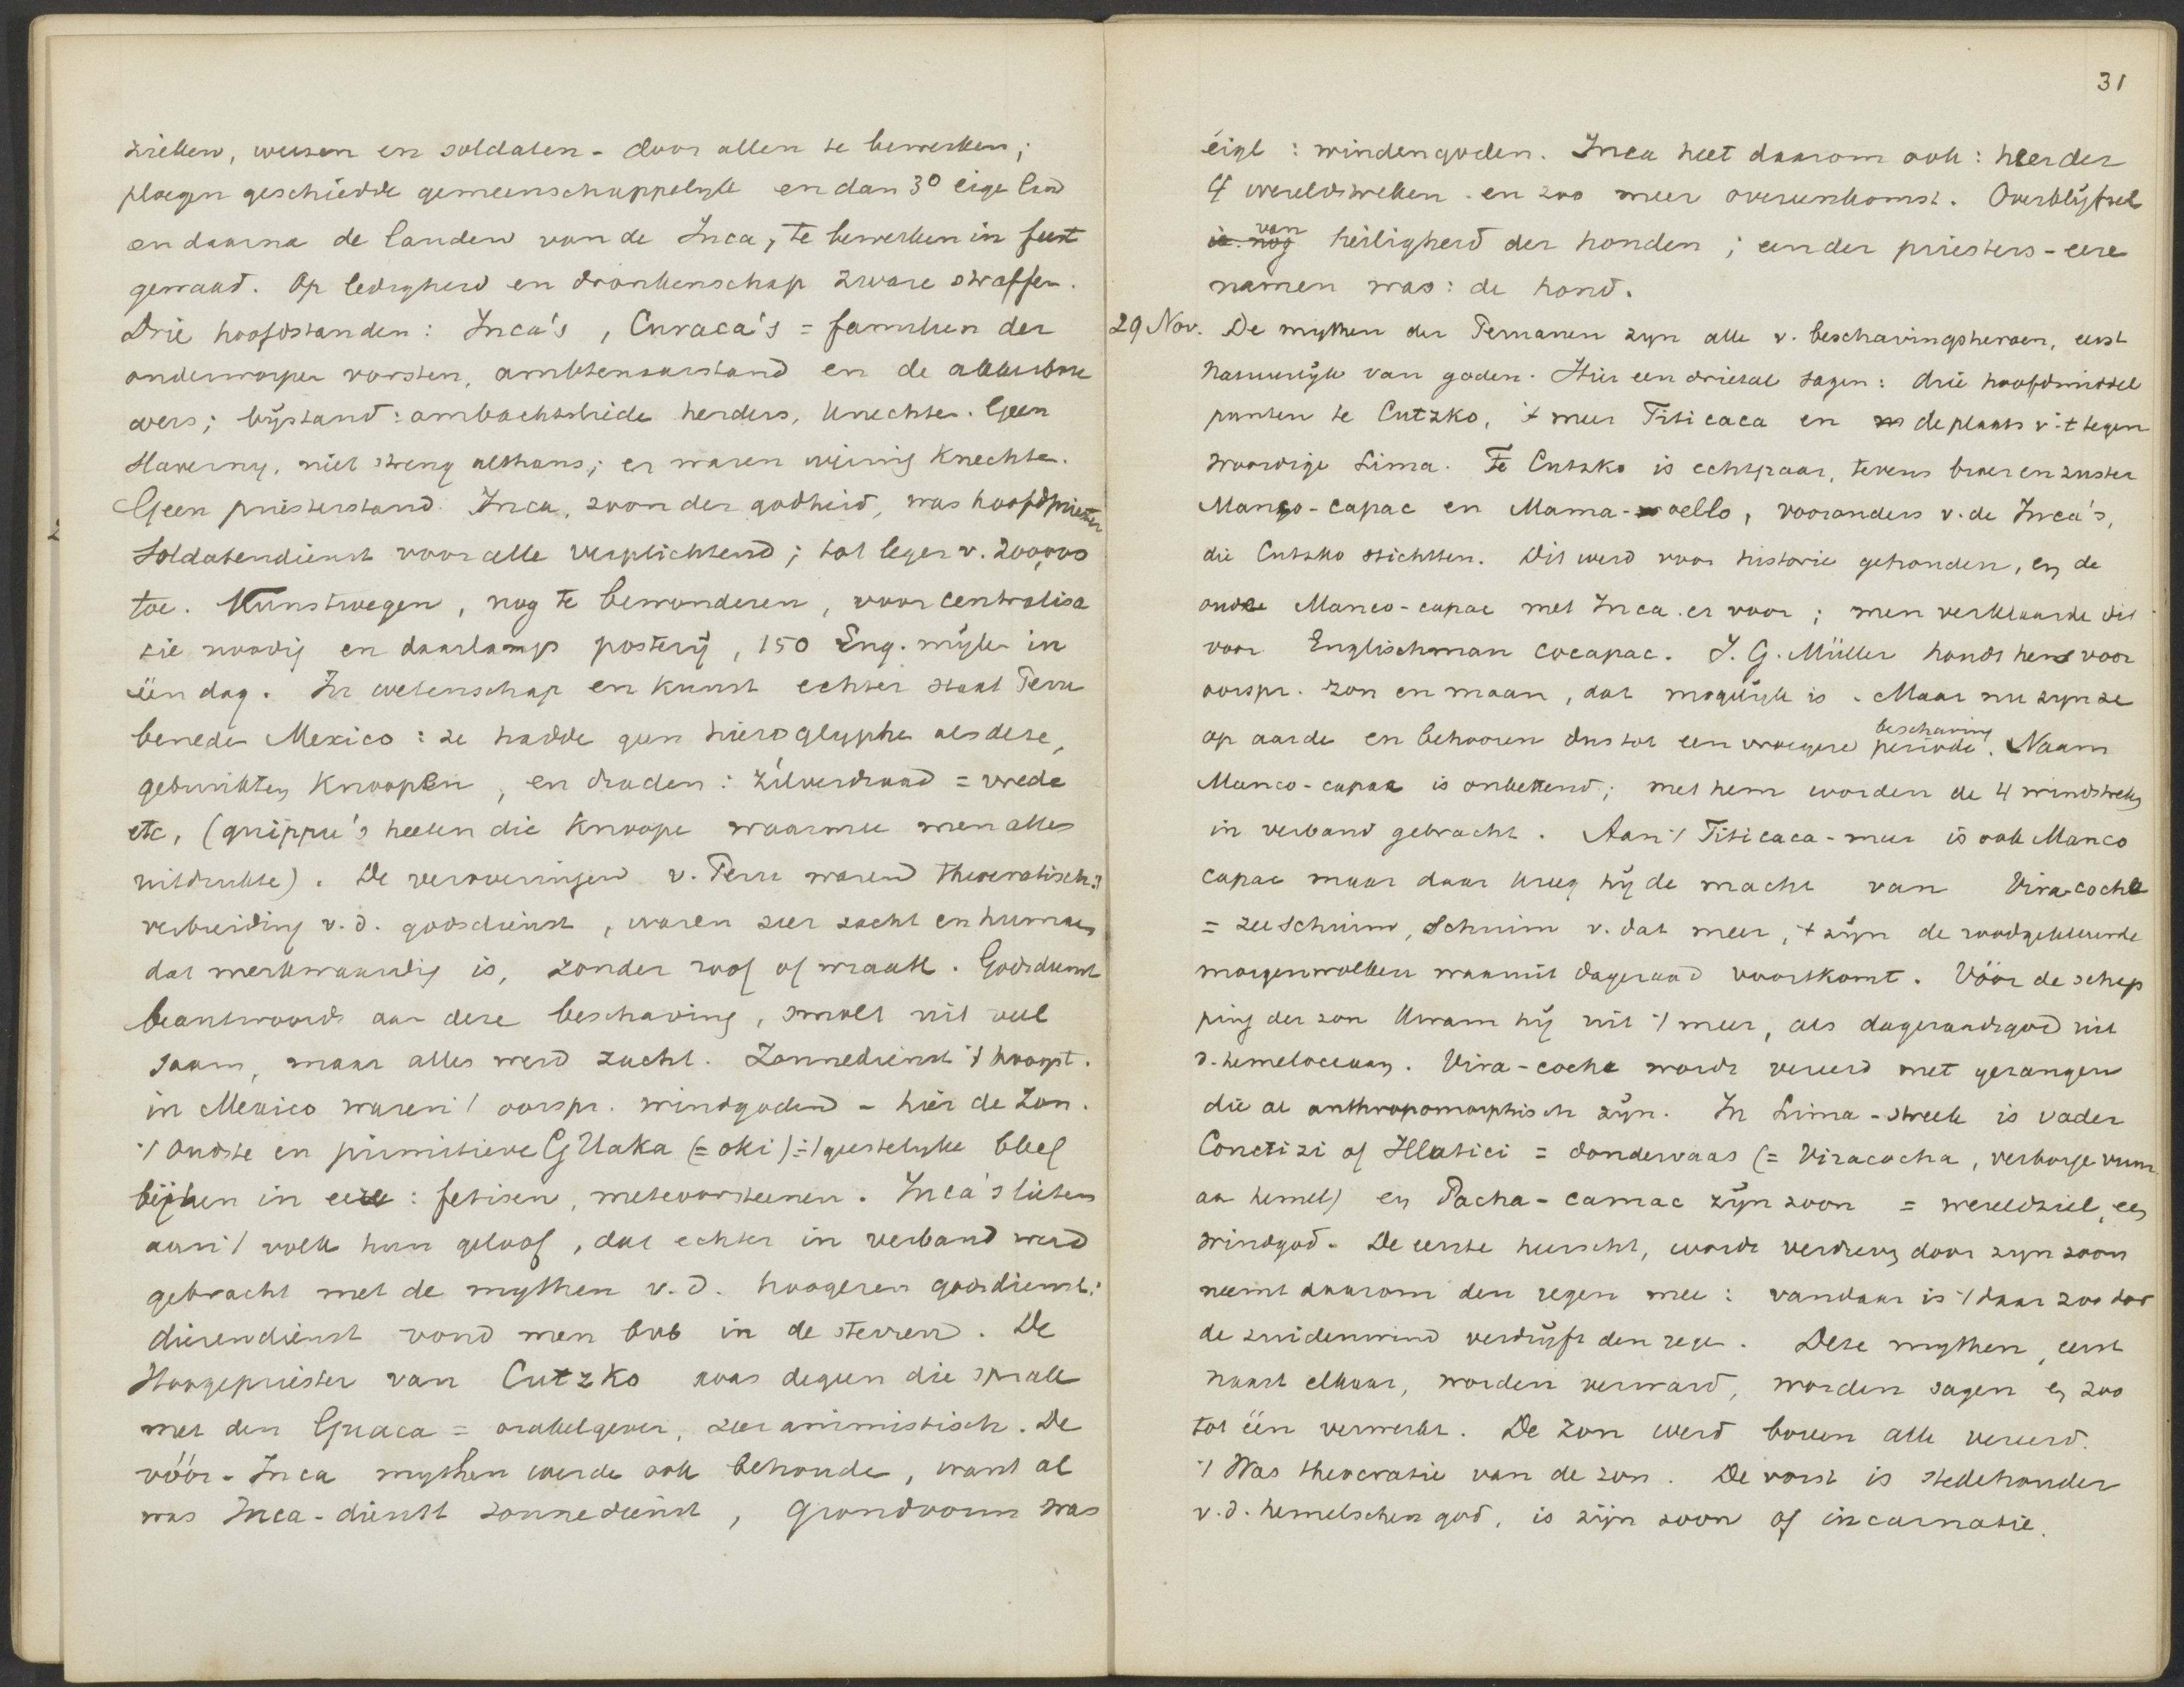 zieken, weesen en soldaten - door allen te bewerken;
ploegen geschiedde gemeenschappelyk en dan 3° eige land
en daarna de landen van de Inca, te bewerken in feest
gewaad. Op ledigheid en dronkenschap zware straffen.
Drie hoofdstanden: Inca's, Curaca's = familien der
onderworpen vorsten, ambtenaarstand en de akkerbou
wers; bijstand: ambachtslieden herders, knechten. Geen
slaverny, niet streng althans; er waren weinig knechte.
Geen priesterstand. Inca, zoon der godheid, was hoofdpriester
Soldatendienst voor alle verplichtend; tot leger v. 200,000
toe. Kunstwegen, nog te bewonderen, voor centralisa
tie noodig en daarlangs posterij, 150 Eng. mijlen in
één dag. In wetenschap en kunst echter staat Peru
beneden Mexico: ze hadde geen hieroglyphe als deze,
gebruikten knoopen, en draden: zilverdraad = vrede
etc, (quippu's heeten die knoope waarmee men alles
uitdrukte). De veroveringen v. Peru waren theocratisch:
verbreiding v.d. godsdienst, waren zeer zacht en humaan
dat merkwaardig is, zonder roof of wraak. Godsdienst
beantwoordt aan deze beschaving, smolt uit veel
saam, maar alles werd zacht. Zonnedienst 't hoogst.
in Mexico waren 't oorspr. windgoden - hier de Zon.
't Oudste en primitieve G Uaka (= oki) = 't geestelyke bleef
bijhen in eere: fetisen, meteoorsteenen. Inca's lieten
aan 't volk hun geloof, dat echter in verband werd
gebracht met de mythen v.d. hoogeren godsdienst:
dierendienst vond men bvb in de sterren. De
Hoogepriester van Cutzko was degeen die sprak
met den Guaca = orakelgever, zeer animistisch. De
vóór-Inca mythen werde ook behoude, want al
was Inca-dienst zonnedienst, grondvorm was
31
eigl: windengoden. Inca heet daarom ook: heer der
4 wereldstreken en zoo meer overeenkomst. Overblijfsel
is nog van heiligheid der honden; een der priesters-eere
namen was: de hond.
29 Nov. De mythen der Peruanen zyn alle v. beschavingsheroen, eerst
natuurlijk van goden. Hier een drietal sagen: drie hoofdmiddel
punten te Cutzko, 't meer Titicaca en de plaats v. 't tegen
woordige Lima. Te Cutzko is echtpaar, tevens broer en zuster
Mango-capac en Mama-oello, voorouders v. de Inca's,
die Cutzko stichtten. Dit werd voor historie gehouden, en de
oude Manco-capac met Inca er voor; men verklaarde dit
voor Englischman cocapac. J. G. Müller houdt hen voor
oorspr. zon en maan, dat mogelijk is. Maar nu zyn ze
op aarde en behooren dus tot een vroegere beschaving periode. Naam
Manco-capac is onbekend; met hem worden de 4 windstreken
in verband gebracht. Aan 't Titicaca-meer is ook Manco
capac maar daar kreeg hij de macht van Vira-cocha
= zeeschuim, schuim v. dat meer, 't zijn de roodgekleurde
morgenwolken waaruit dageraad voortkomt. Vóór de schep
ping der zon kwam hij uit 't meer, als dageraadsgod uit
d. hemeloceaan. Vira-cocha wordt vereerd met gezangen
die al anthropomorphisch zijn. In Lima-streek is vader
Conctizi of Illatici = dondervaas (= Viracocha, verborge vuur
aan hemel) en Pacha-camac zijn zoon = wereldziel, een
windgod. De eerste heerscht, wordt verdreven door zyn zoon
neemt daarom den regen mee: vandaar is 't daar zoo dor
de zuidenwind verdrijft den rege. Deze mythen, eerst
naast elkaar, worden verward, worden sagen en zoo
tot één verwerkt. De Zon werd boven alle vereerd.
't Was theocratie van de zon. De vorst is stedehouder
v.d. hemelschen god, is zijn zoon of incarnatie.